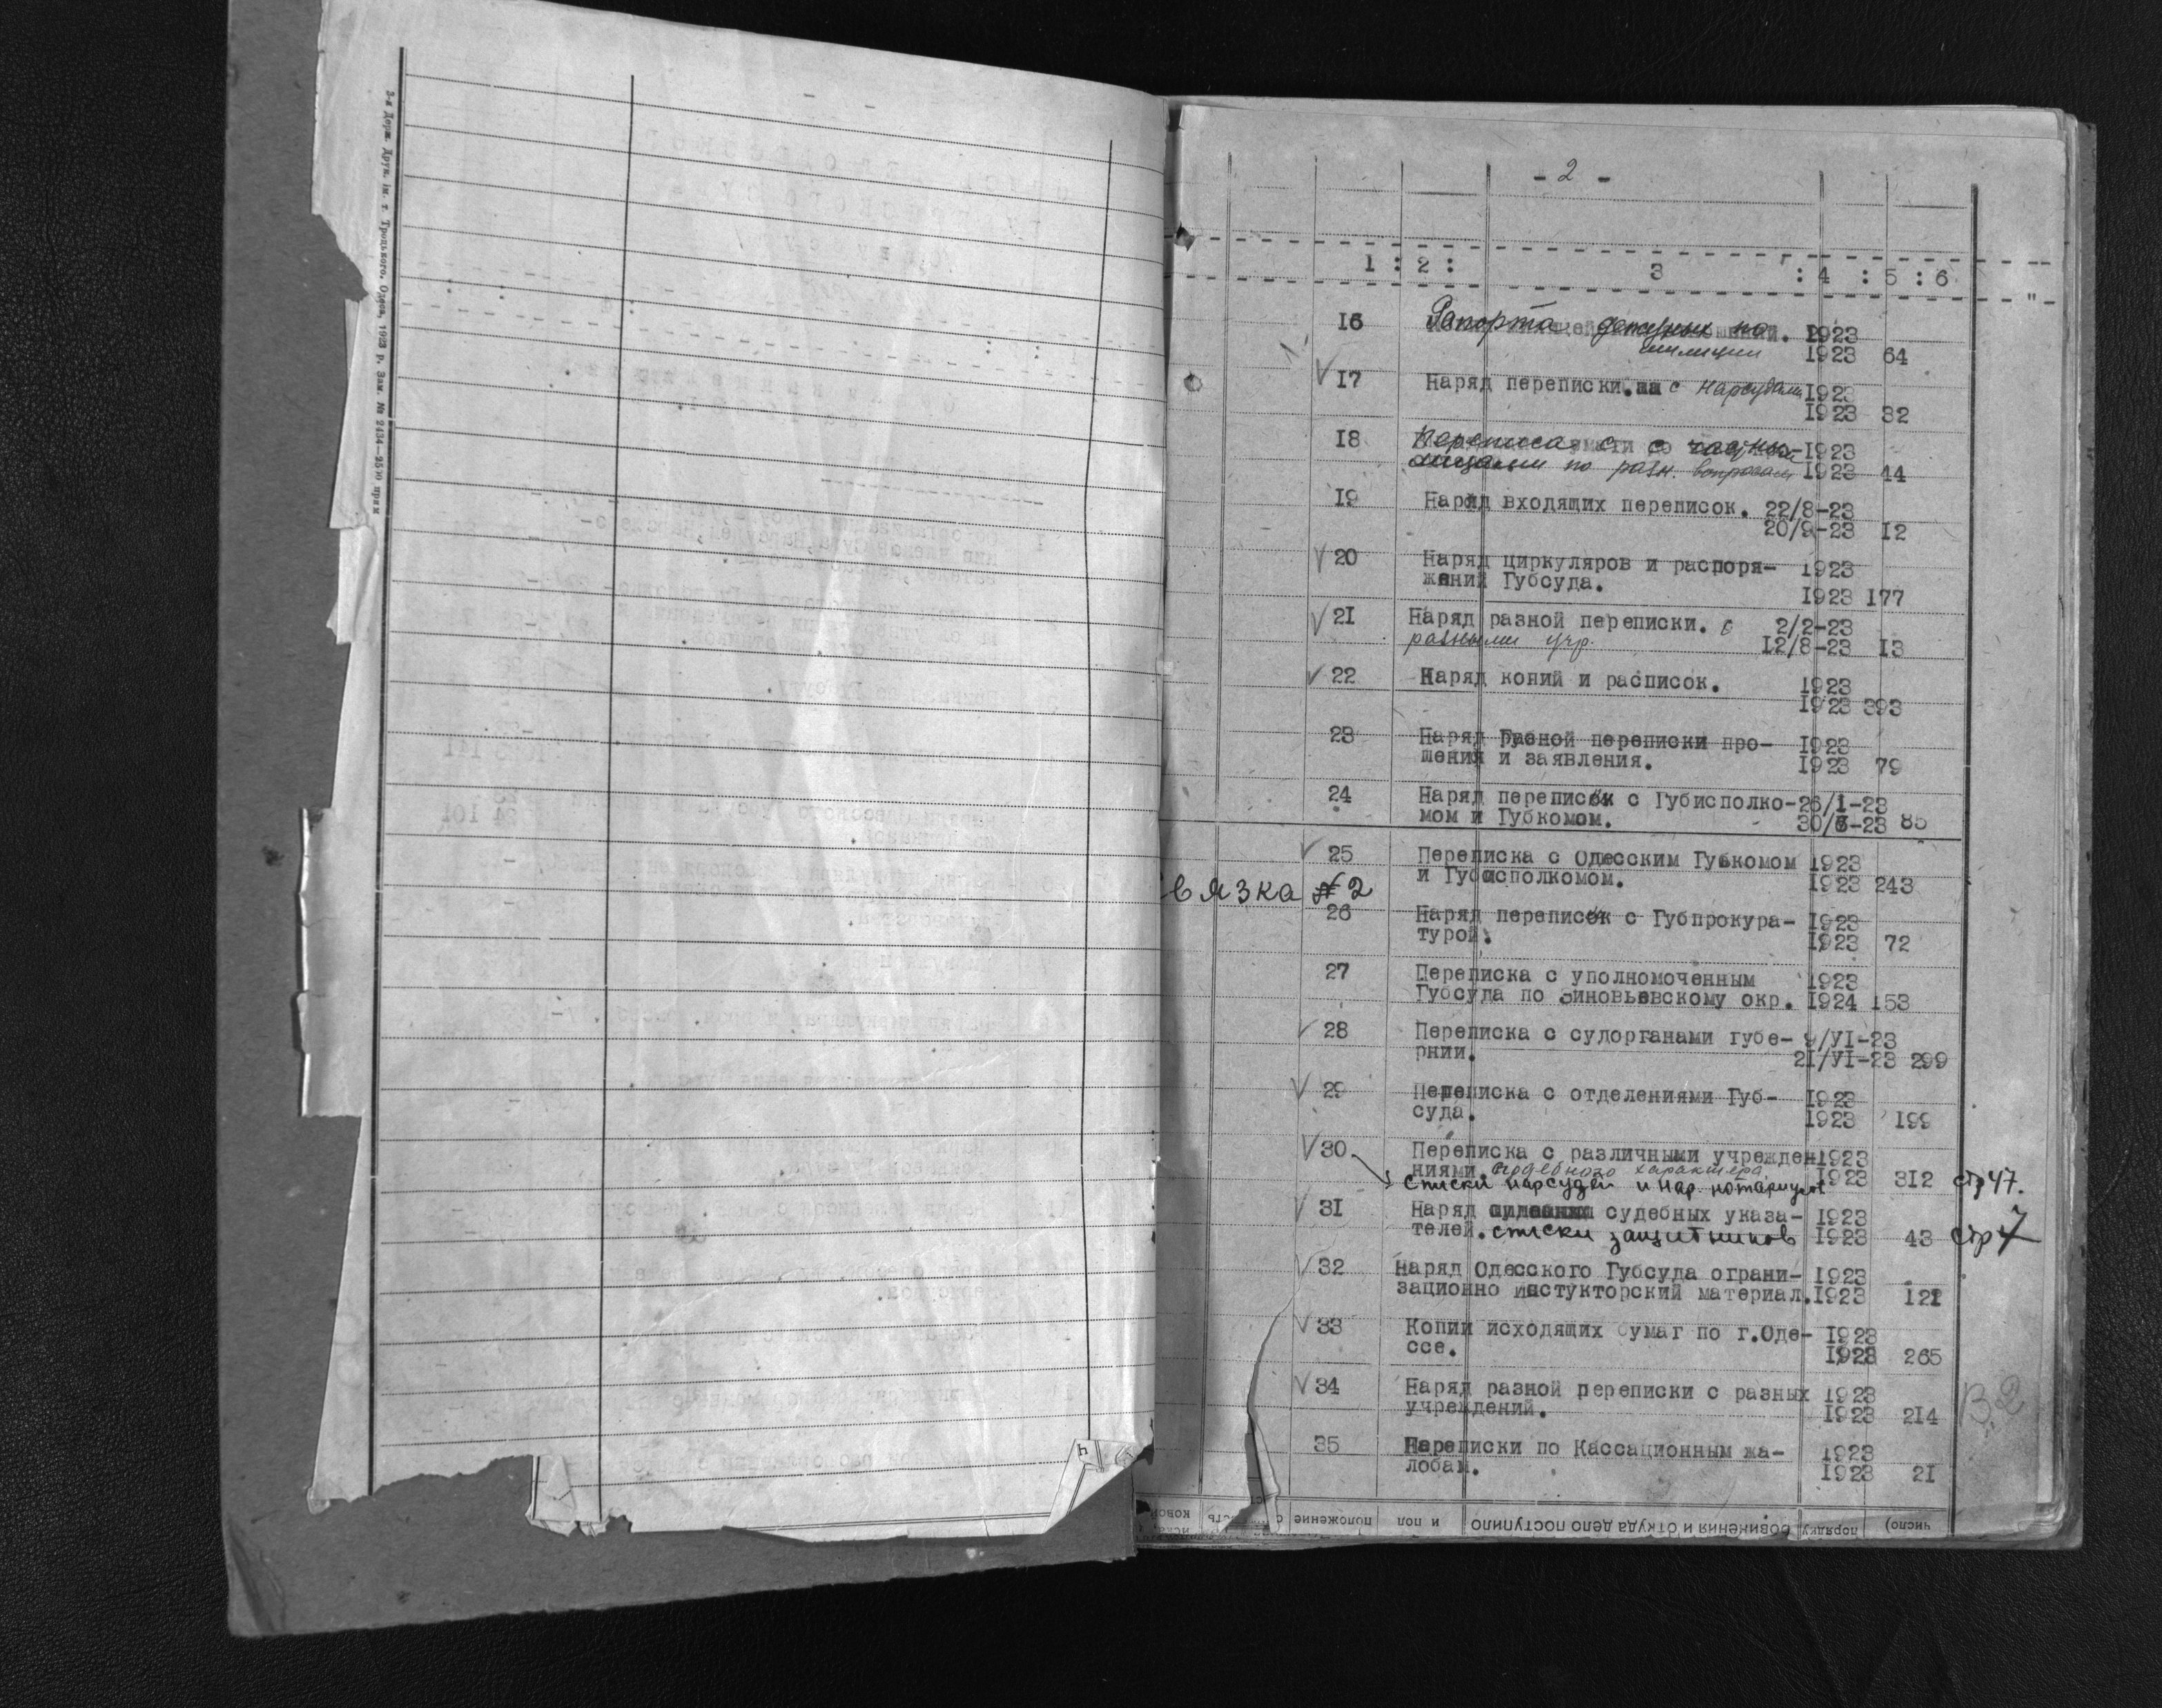 3-я Держ. Друк. ім. т. Троцького. Одеса, 1923 р. Зам. № 2434—2500 прим
- 2 -
1 : 2 : 3 : 4 : 5 : 6
16 Рапорта дежурных по 1923
милиции 1923 64
17 Наряд переписки. с Нарсудами 1923
1923 32
18 Переписка с 1923
лицами по разн. вопросам 1923 44
19 Наряд входящих переписок. 22/8-23
20/9-23 12
20 Наряд циркуляров и распоря- 1923
жений Губсуда.
1923 177
21 Наряд разной переписки. с 2/2-23
разными учр. 12/8-23 13
22 Наряд копий и расписок. 1923
1923 393
23 Наряд разной переписки про- 1923
шения и заявления. 1923 79
24 Наряд переписок с Губисполко- 26/I-23
мом и Губкомом. 30/8-23 85
25 Переписка с Одесским Губкомом 1923
и Губисполкомом. 1923 243
вязка № 2
26 Наряд переписок с Губпрокура- 1923
турой. 1923 72
27 Переписка с уполномоченным 1923
Губсуда по Зиновьевскому окр. 1924 153
28 Переписка с судорганами губе- 9/УІ-23
рнии. 21/УІ-23 299
29 Переписка с отделениями Губ- 1923
суда. 1923 199
30 Переписка с различными учрежден 1923
ниями. судебного характера 1923 312 стр 47.
списки нарсудей и нар. нотариусов
31 Наряд судебных указа- 1923
телей. списки защитников 1923 43 стр 7
32 Наряд Одесского Губсуда ограни- 1923
зационно инстукторский материал. 1923 121
33 Копии исходящих бумаг по г.Оде- 1923
ссе. 1923 265
34 Наряд разной переписки с разных 1923
учреждений. 1923 214
35 Переписки по Кассационным жа- 1923
лобам. 1923 21
положение
и пол
бовинения и откуда дело поступило
порядку
число)